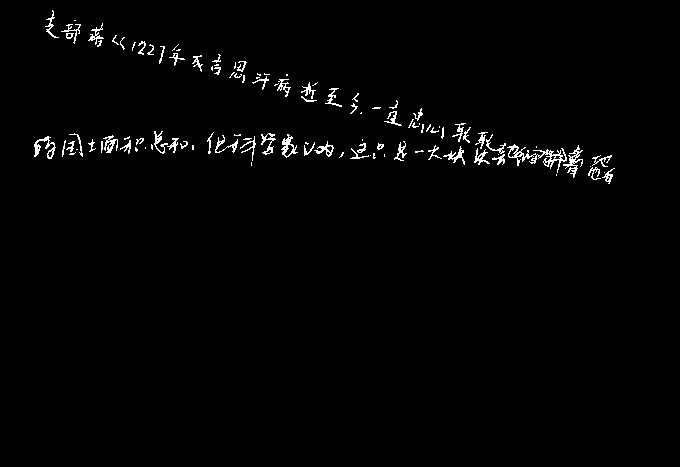 支部落从1227年成吉思汗病逝至今,一直忠心耿耿
国土面积总和,但科学家认为,这只是一大块